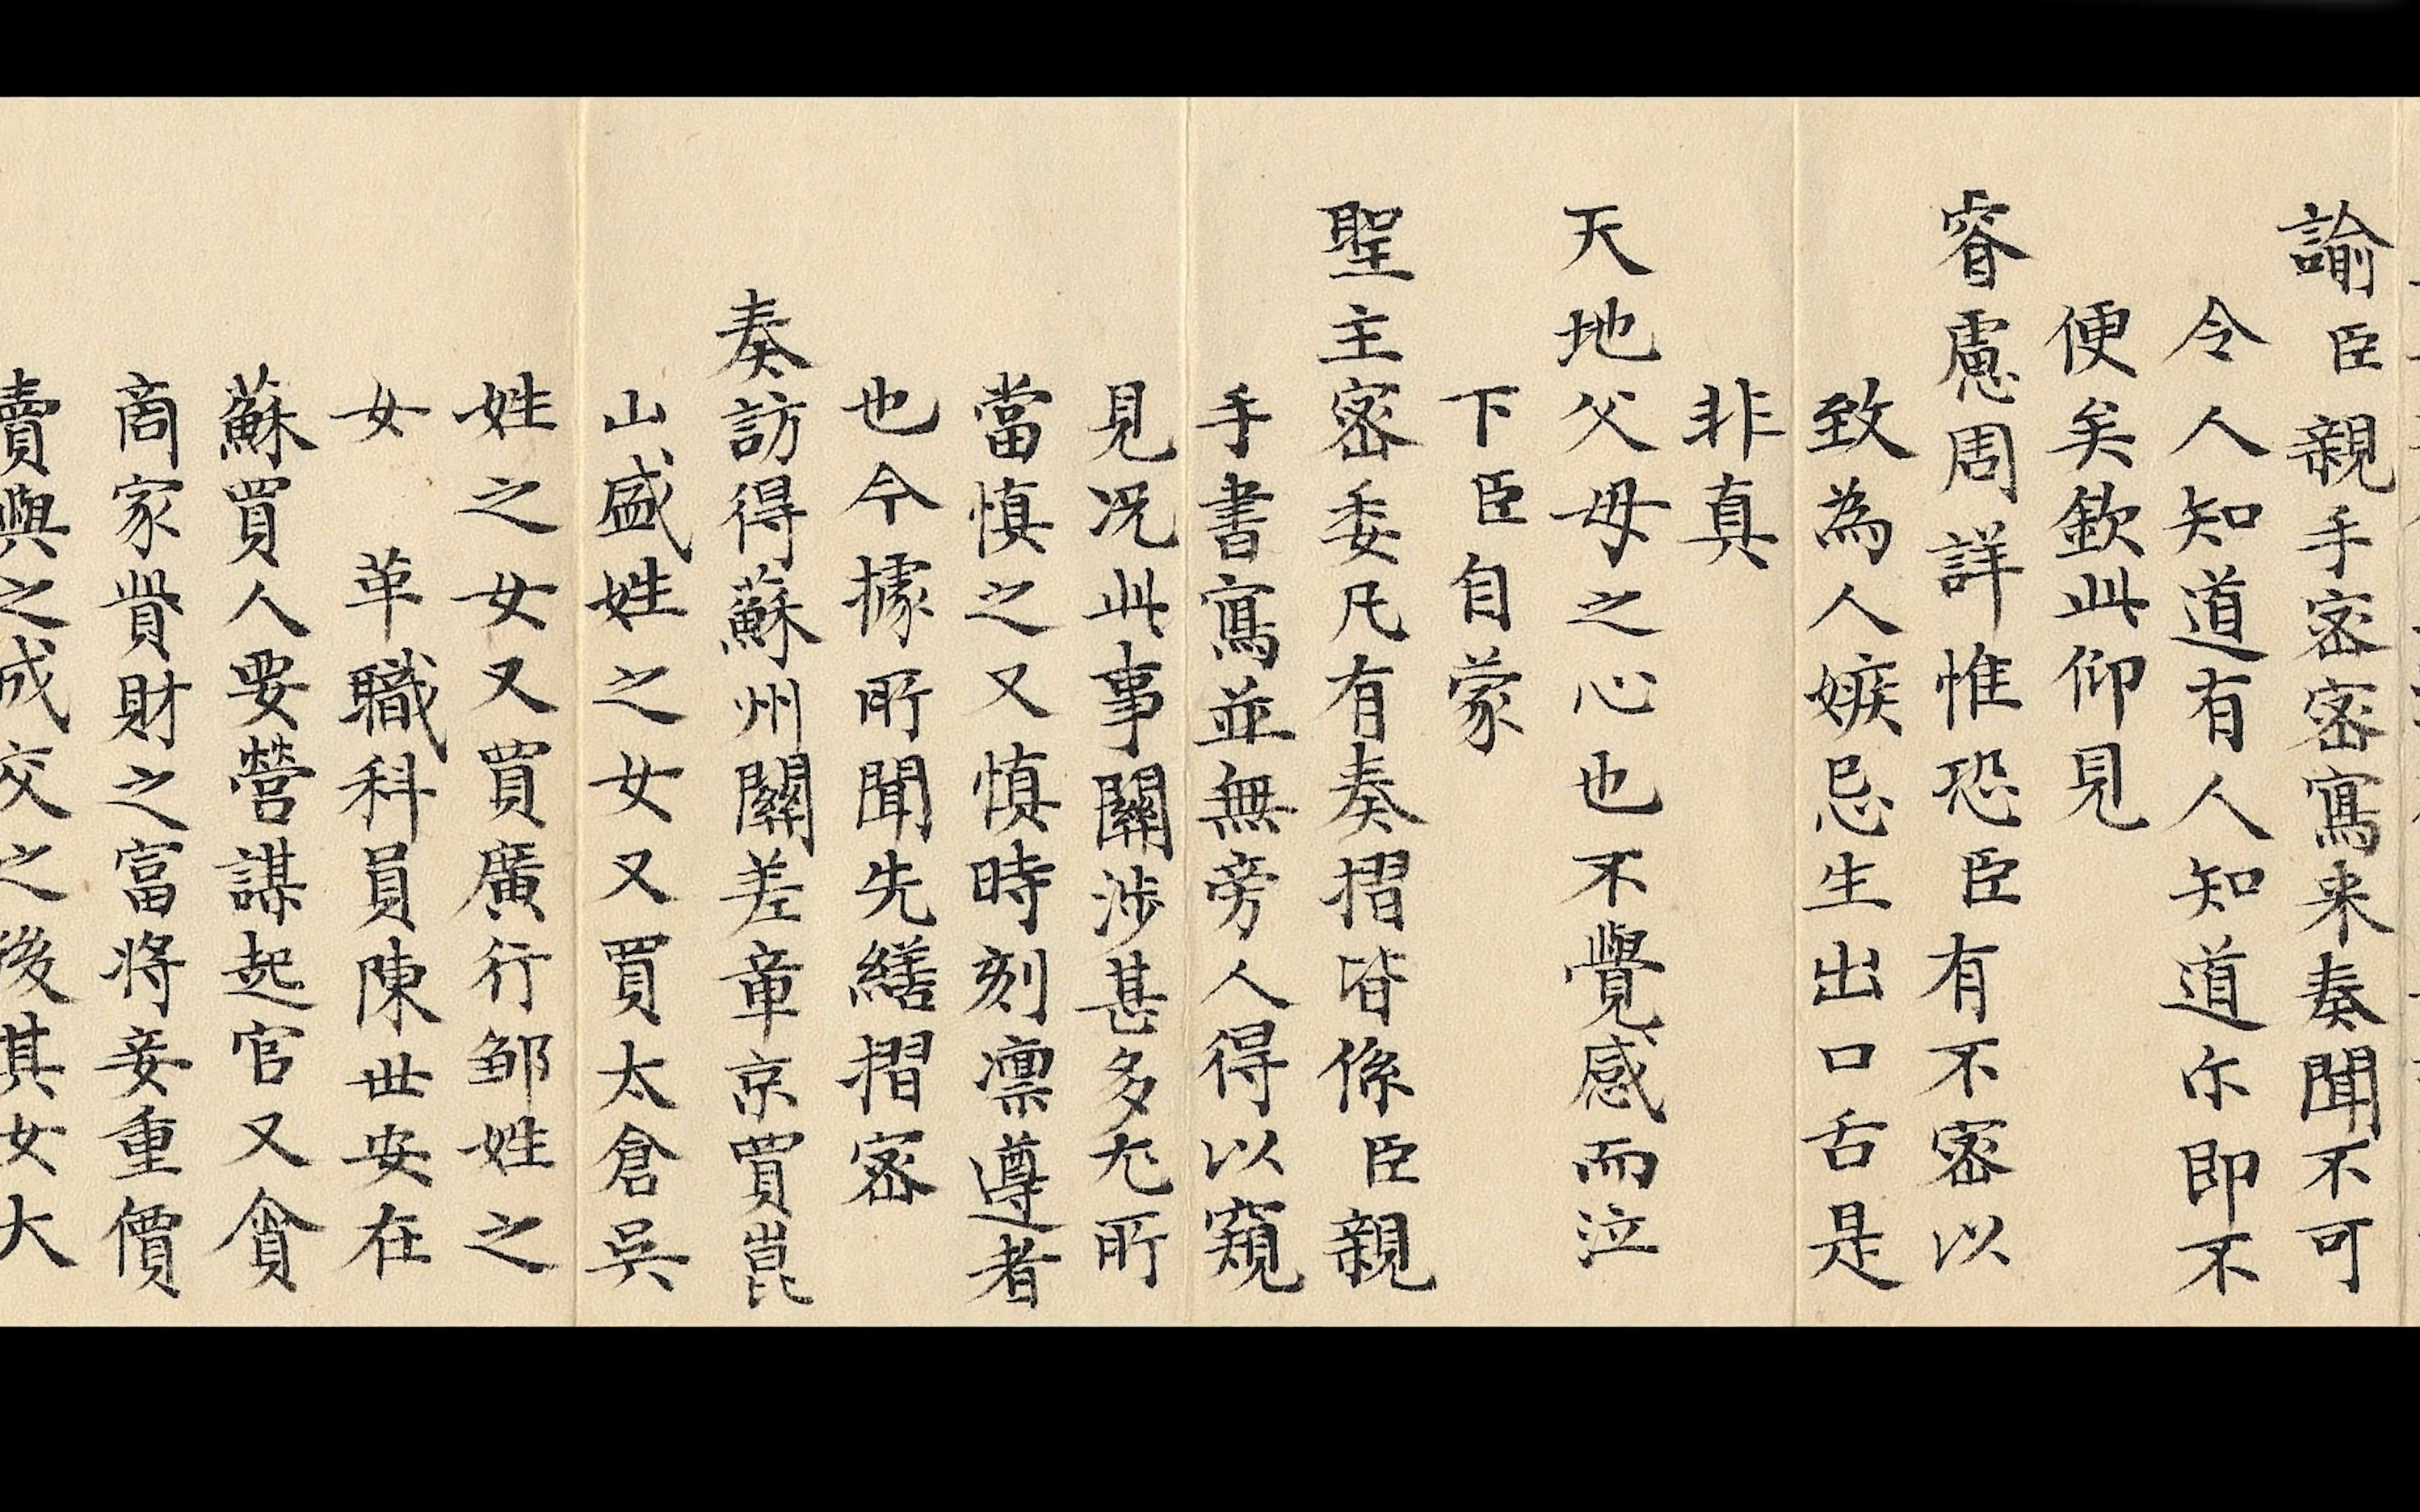 諭臣親手密密寫来奏聞不可
令人知道有人知道尒即不
便矣欽此仰見
睿慮周詳惟恐臣有不密以
致為人嫉忌生出口舌是
非真
天地父母之心也不覺感而泣
下臣自蒙
聖主密委凡有奏摺皆係臣親
手書寫並無旁人得以窺
見况此事關涉甚多尤所
當慎之又慎時刻凛遵者
也今據所聞先繕摺密
奏訪得蘇州關差章京買崑
山盛姓之女又買太倉吳
姓之女又買廣行邹姓之
女 革職科員陳世安在
蘇買人要營謀起官又貪
商家貲財之富將妾重價
賣與之成交之後其女大